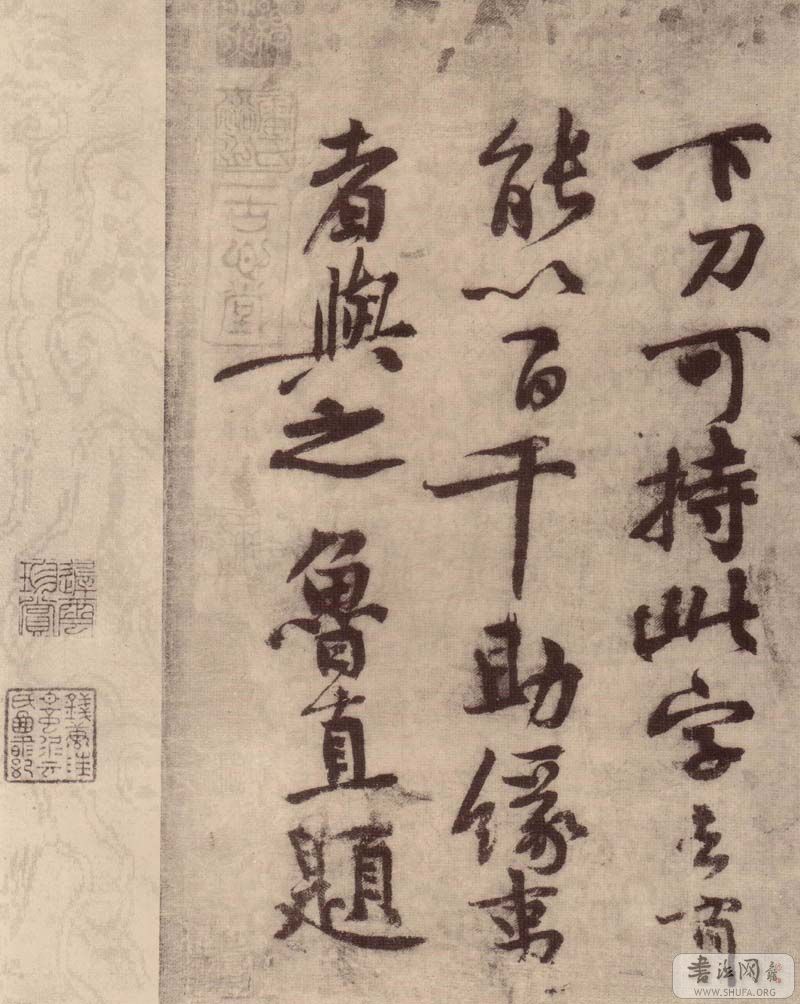 下刀可持此字去有
能以百千助緣事
者與之 魯直題
书法网
WWW.SHUFA.ORG